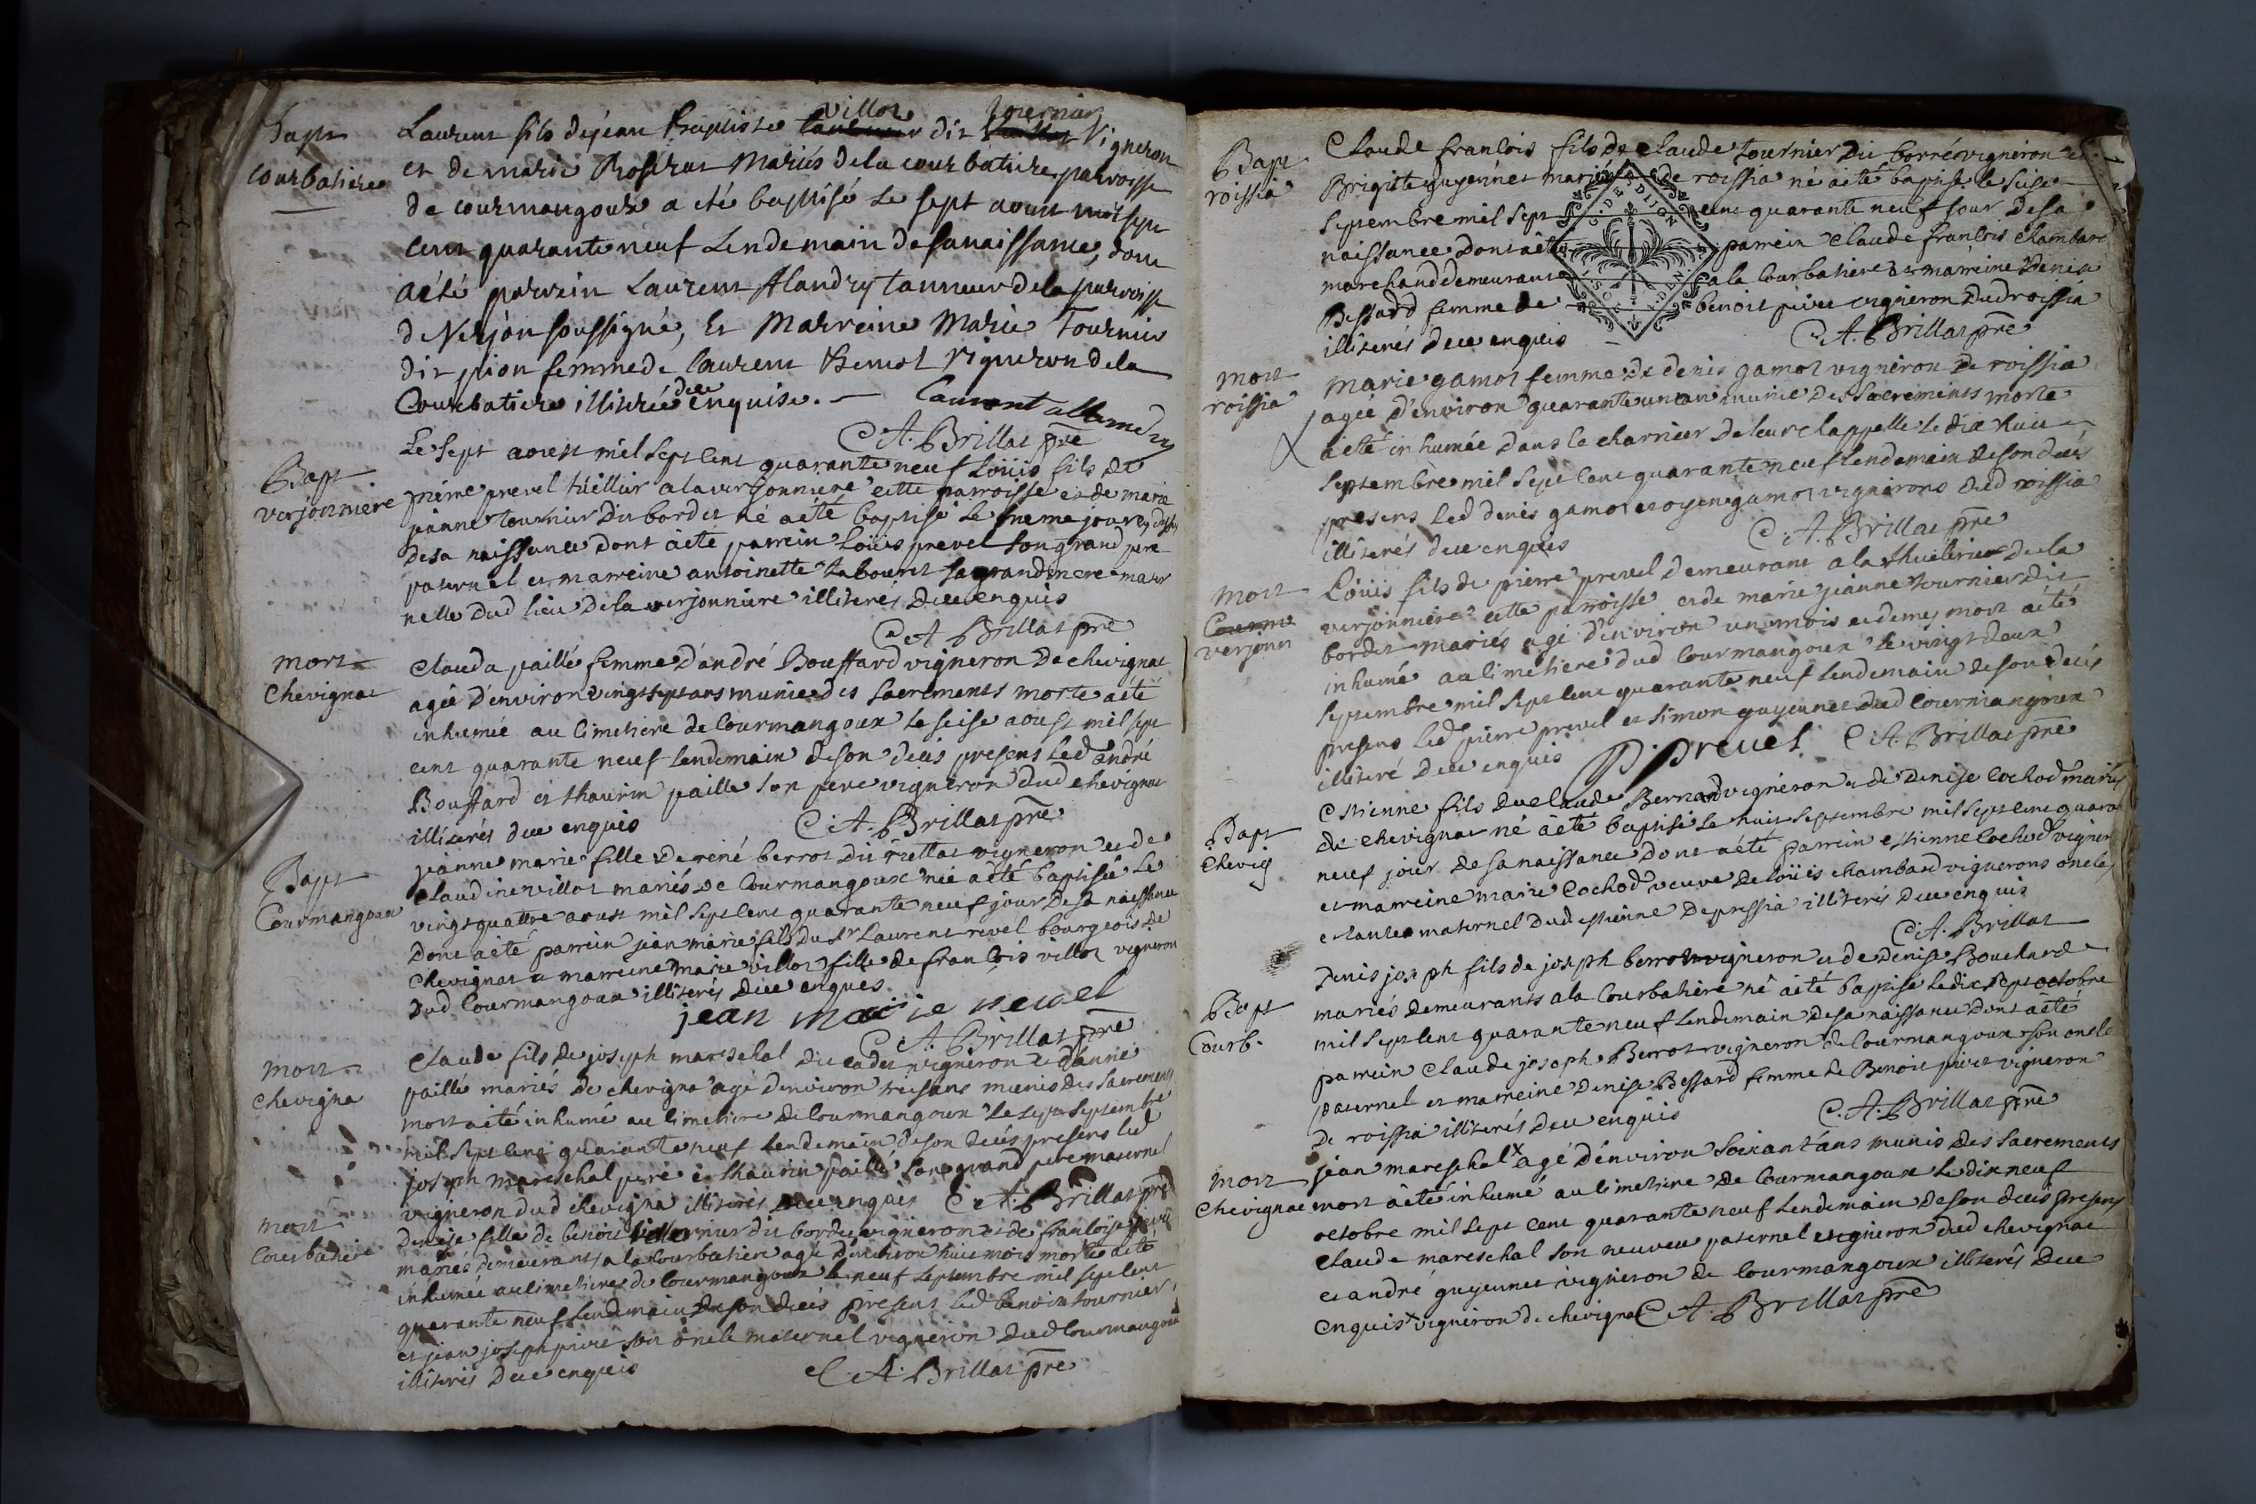 Bapt
courbatiere
Laurent fils de jean Baptiste villot dit tournier Vigneron
et de marie mariés de la courbatiere paroisse
de courmangoux a été baptisé le sept aoust mil sept
cent quarante neuf Lendemain de sa naissance, dont
a été parrein Laurent Alandry tanneur de la paroisse
de Verjon soussigné, Et Marreine Marie Tournier
dit pion femme de laurent Benoist vigneron de la
Courbatiere illitirée de ce enquise. — Laurent allandry
C. A. Brillat pre
Bapt
verjonniere
Le sept aoust mil sept cent quarante neuf Loüis fils de
pierre prevel tuillier a la verjonniere cette parroisse et de marie
jeanne tournier dit bordet né a été baptisé le meme jour
de sa naissance dont a été parrein Loüis prevel son grand pere
paternel et marreine antoinette sa grand mere mater
nelle dud lieu de la verjonniere illiterés de ce enquis
C. A. Brillat pre
mort
chevignat
Clauda paillé femme d'andré Bouffard vigneron de chevignat
agée d'environ vingt sept ans munie des sacrements morte a été
inhumée au cimetiere de Courmangoux le seise aoust mil sept
cent quarante neuf lendemain de son décés presens led andré
Bouffard et thaurin paillé son pere vigneron dud chevignat
illiterés de ce enquis
C. A. Brillat pre
Bapt
Courmangoux
jeanne marie fille de rené berrot dit vigneron et de
Claudine villot mariés de Courmangoux née a été baptisée le
vingt quattre aoust mil sept cent quarante neuf jour de sa naissance
dont a été parrein jean marie fils du Sr Laurent revel bourgeois de
Chevignat et marreine marie villot fille de francois villot vigneron
dud Courmangoux illiterés de ce enquis
jean marie revel
C. A. Brillat pre
mort
chevigna
Claude fils de joseph mareschal dit cadet vigneron et d'anne
paillé mariés de chevigna agé d'environ treise ans munis des sacrements
mort a été inhumé au cimetiere de Courmangoux le sept septembre
mil sept cent quarante neuf lendemain de son décés presens led
joseph mareschal pere et thaurin paillé son grand pere maternel
vigneron dud chevigna illiterés de ce enquis C. A. Brillat pre
mort
Courbatiere
Denise fille de benoit tournier dit bordet vigneron et de francoise
mariés demeurants a la Courbatiere agée d'environ huit mois morte a été
inhumée au cimetiere de Courmangoux le neuf septembre mil sept cent
quarante neuf lendemain de son décés presens led benoit tournier
et jean joseph son oncle maternel vigneron dud Courmangoux
illiterés de ce enquis
C. A. Brillat pre
Bapt
roissia
Claude francois fils de claude tournier dit borré vigneron et
Brigitte guyennet mariés de roissia né a été baptisé le seise
septembre mil sept cent quarante neuf jour de sa
naissance dont a été parrein claude francois chambard
marchand demeurant a la Courbatiere et marreine denise
Bessard femme de benoit vigneron dud roissia
illiterés de ce enquis
C. A. Brillat pre
G. DE DIJON
mort
roissia
marie gamot femme de denis gamot vigneron de roissia
agée d'environ quarante un an munie des sacrements morte
a été inhumée dans le charnier de leur chappelle le dix huit
septembre mil sept cent quarante neuf lendemain de son decés
presens led denis gamot et oyen gamot vignerons dud roissia
illiterés de ce enquis
C. A. Brillat pre
mort
verjonn
Loüis fils de pierre prevel demeurant a la thuilerie de la
verjonniere cette parroisse et de marie jeanne tournier dit
bordet mariés agé d'environ un mois et demi mort a été
inhumé au cimetiere dud Courmangoux le vingt deux
septembre mil sept cent quarante neuf lendemain de son decés
presens led pierre prevel et simon guyennet dud Courmangoux
illiteré de ce enquis P. prevel C. A. Brillat pre
Bapt
Chevig
Estienne fils de claude Bernard vigneron et de denise Cochod mariés
de chevignat né a été baptisé le huit septembre mil sept cent quarante
neuf jour de sa naissance dont a été parrein estienne Cochod vigneron
et marreine marie Cochod veuve de loüis chambard vignerons oncle
et tante maternel dud estienne de pressia illiterés de ce enquis
C. A. Brillat
Bapt
Courb.
Denis joseph fils de joseph berrot vigneron et de denise Bouchard
mariés demeurants a la Courbatiere né a été baptisé le dix sept octobre
mil sept cent quarante neuf lendemain de sa naissance dont a été
parrein claude joseph Berrot vigneron de Courmangoux son oncle
paternel et marreine denise Bessard femme de Benoit vigneron
de roissia illiterés de ce enquis
C. A. Brillat pre
mort
Chevignat
jean mareschal x agé d'environ soixant'ans munis des sacrements
mort a été inhumé au cimetiere de Courmangoux le dix neuf
octobre mil sept cent quarante neuf lendemain de son décés presens
claude mareschal son neuveu paternel vigneron dud chevignat
et andré guyennet vigneron de Courmangoux illiterés de ce
enquis x vigneron de chevigna C. A. Brillat pre